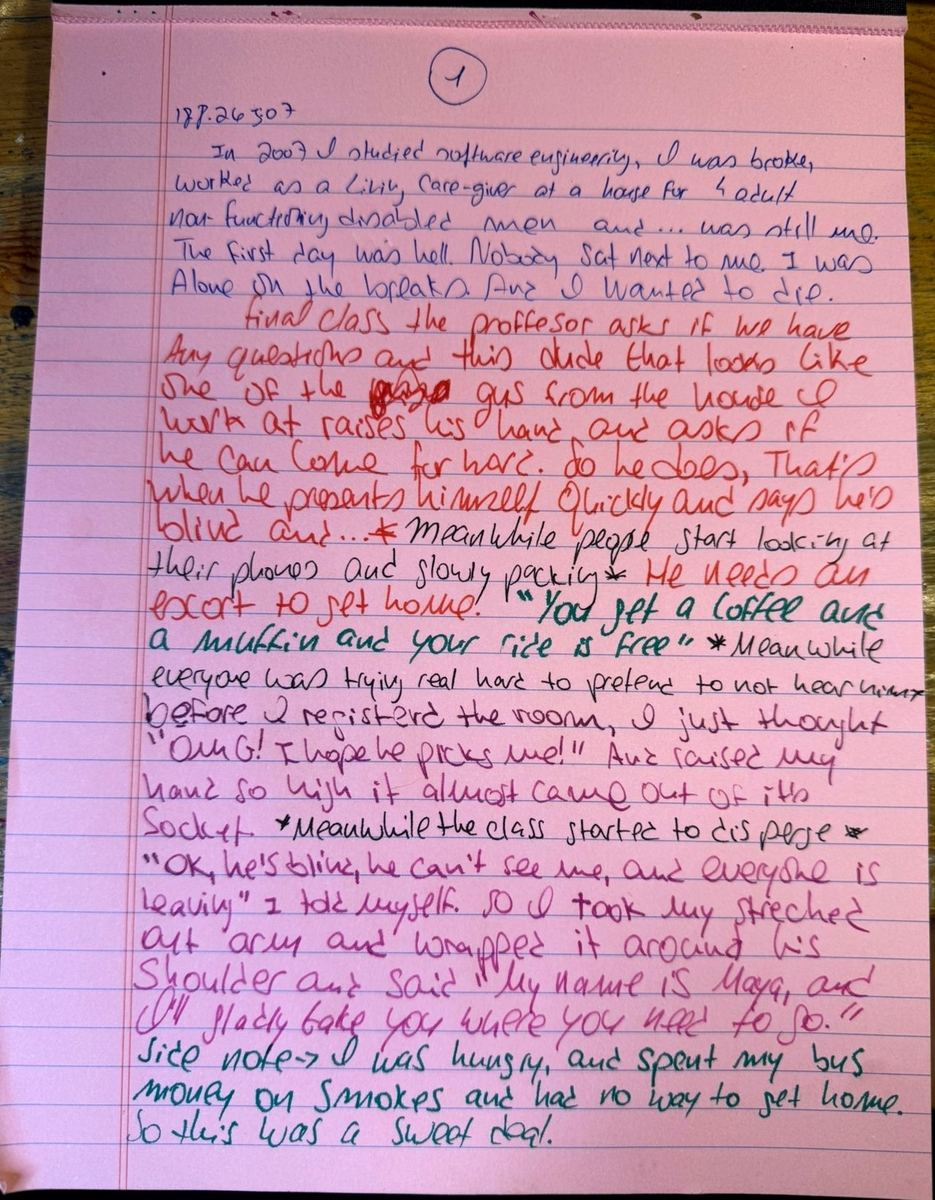 1
In 2007 I studied software engineering, I was broke,
worked as a living care-giver at a house for 4 adult
non functioning disabled men and... was still me.
The first day was hell. Nobody sat next to me. I was
Alone on the breaks. And I wanted to die.
final class the proffesor asks if we have
Any questions and this dude that looks like
one of the guys from the house I
work at raises his hand and asks if
he can come forward. So he does, That's
when he presents himself Quickly and says he's
blind and...* Meanwhile people start looking at
their phones and slowly packing* He needs an
escort to get home! "You get a coffee and
a muffin and your ride is free" *Meanwhile
everyone was trying real hard to pretend to not hear him*
before I registerd the room, I just thought
"OMG! I hope he picks me!" And raised my
hand so high it almost came out of its
Socket. *Meanwhile the class started to disperse*
"OK, he's blind, he can't see me, and everyone is
leaving" I told myself. So I took my streched
out arm and wrapped it around his
Shoulder and said "My name is Maya, and
I'll gladly take you where you need to go."
Side note-> I was hungry, and spent my bus
money on smokes and had no way to get home.
So this was a sweet deal.